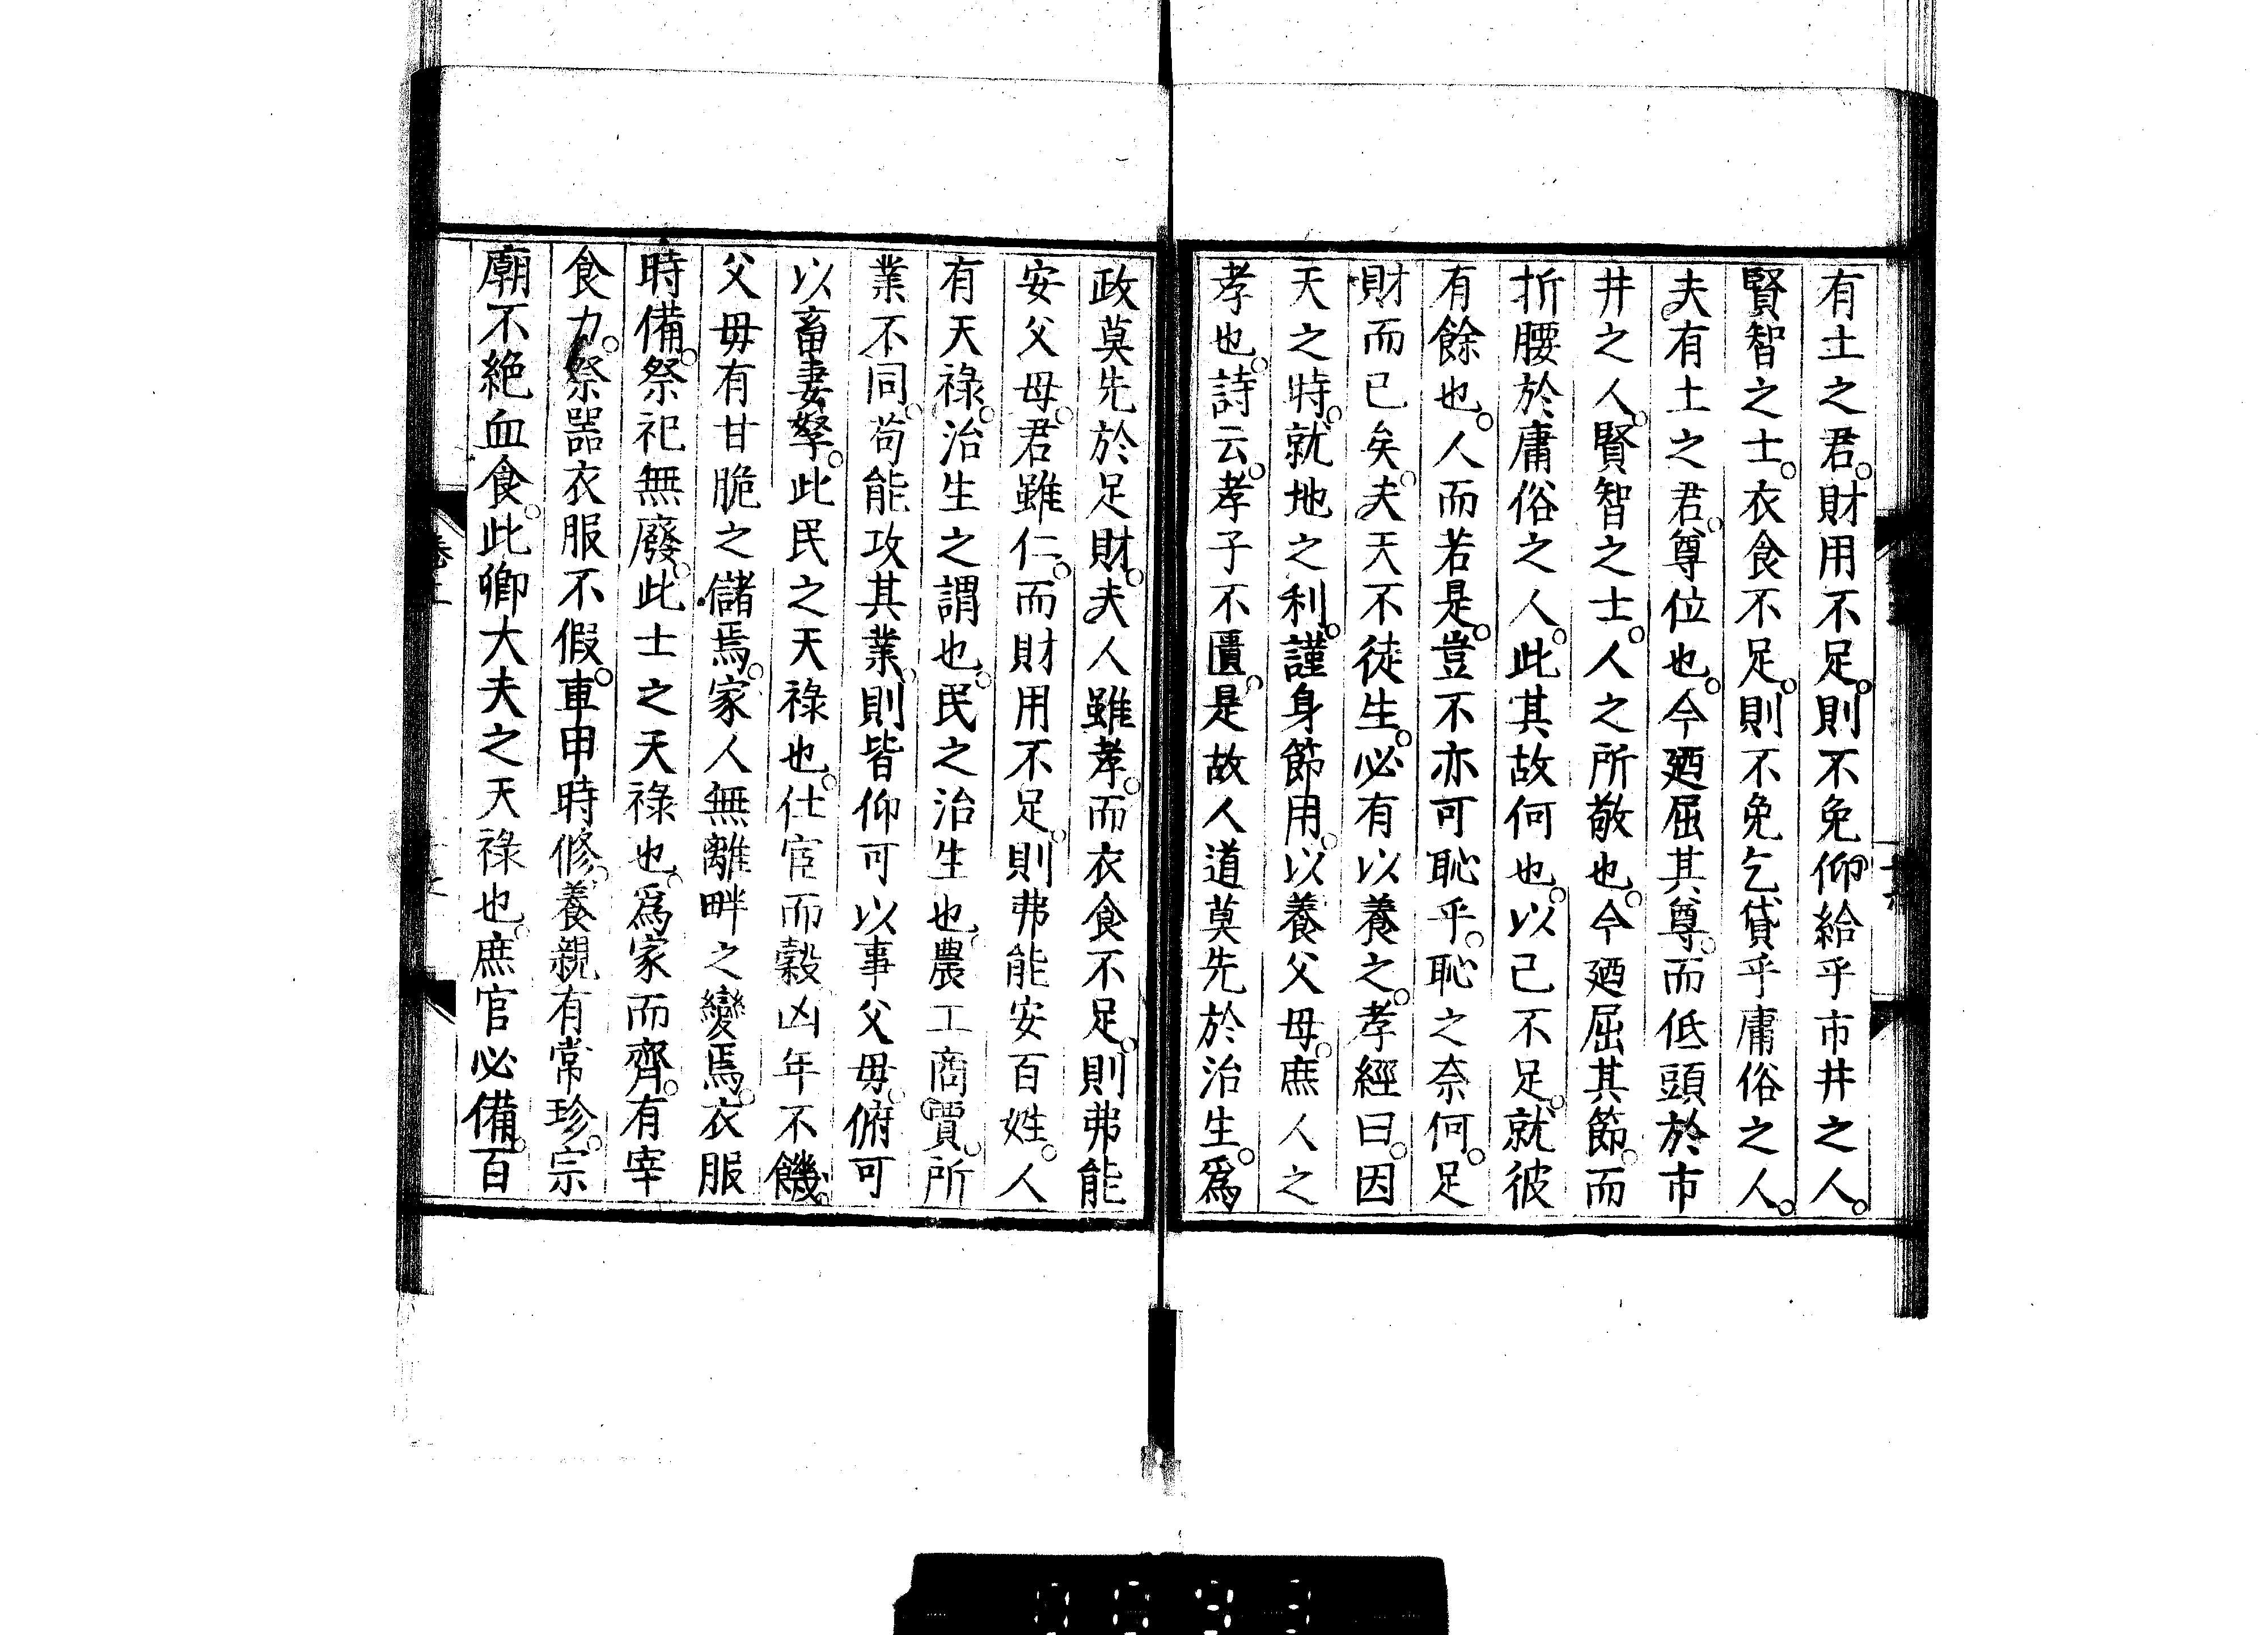 有土之君。財用不足。則不免仰給乎市井之人。
賢智之士。衣食不足。則不免乞貸乎庸俗之人。
夫有土之君。尊位也。今廼屈其尊。而低頭於市
井之人。賢智之士。人之所敬也。今廼屈其節。而
折腰於庸俗之人。此其故何也。以己不足。就彼
有餘也。人而若是。豈不亦可恥乎。恥之奈何。足
財而已矣。夫天不徒生。必有以養之。孝經曰。因
天之時。就地之利。謹身節用。以養父母。庶人之
孝也。詩云。孝子不匱。是故人道莫先於治生。爲
政莫先於足財。夫人雖孝。而衣食不足。則弗能
安父母。君雖仁。而財用不足。則弗能安百姓。人
有天祿。治生之謂也。民之治生也。農工商賈。所
業不同。苟能攻其業。則皆仰可以事父毋。俯可
以畜妻孥。此民之天祿也。仕宦而穀。凶年不饑。
父毋有甘脆之儲焉。家人無離畔之變焉。衣服
時備。祭祀無廢。此士之天祿也。爲家而齊。有宰
食力。祭器衣服不假。車甲時修。養親有常珍。宗
廟不絶血食。此卿大夫之天祿也。庶官必備。百